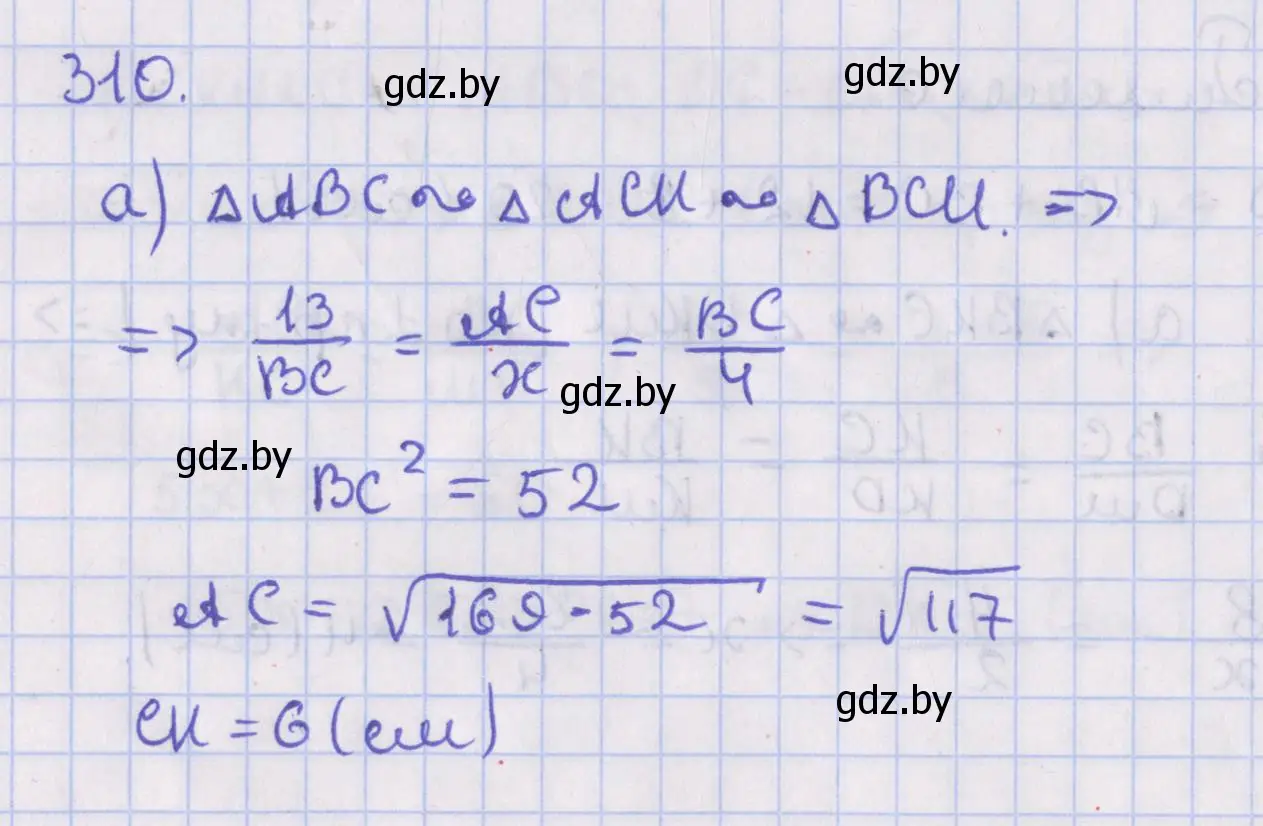 310.
gdz.by
gdz.by
а) △ABC ∾ △ACK ∾ △BCK. =>
=> 13/BC = AC/x = BC/4
gdz.by
gdz.by
BC² = 52
AC = √169-52 = √117
gdz.by
CK = 6 (см)